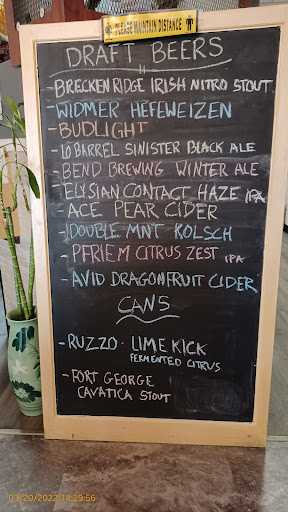 PLEASE MAINTAIN DISTANCE
DRAFT BEERS
- BRECKENRIDGE IRISH NITRO STOUT
- WIDMER HEFEWEIZEN
- BUDLIGHT
- 10 BARREL SINISTER BLACK ALE
- BEND BREWING WINTER ALE
- ELYSIAN CONTACT HAZE IPA
- ACE PEAR CIDER
- DOUBLE MNT KOLSCH
- PFRIEM CITRUS ZEST IPA
- AVID DRAGONFRUIT CIDER
CANS
- RUZZO - LIME KICK
FERMENTED CITRUS
- FORT GEORGE
CAVATICA STOUT
03/20/2022 14:39:56